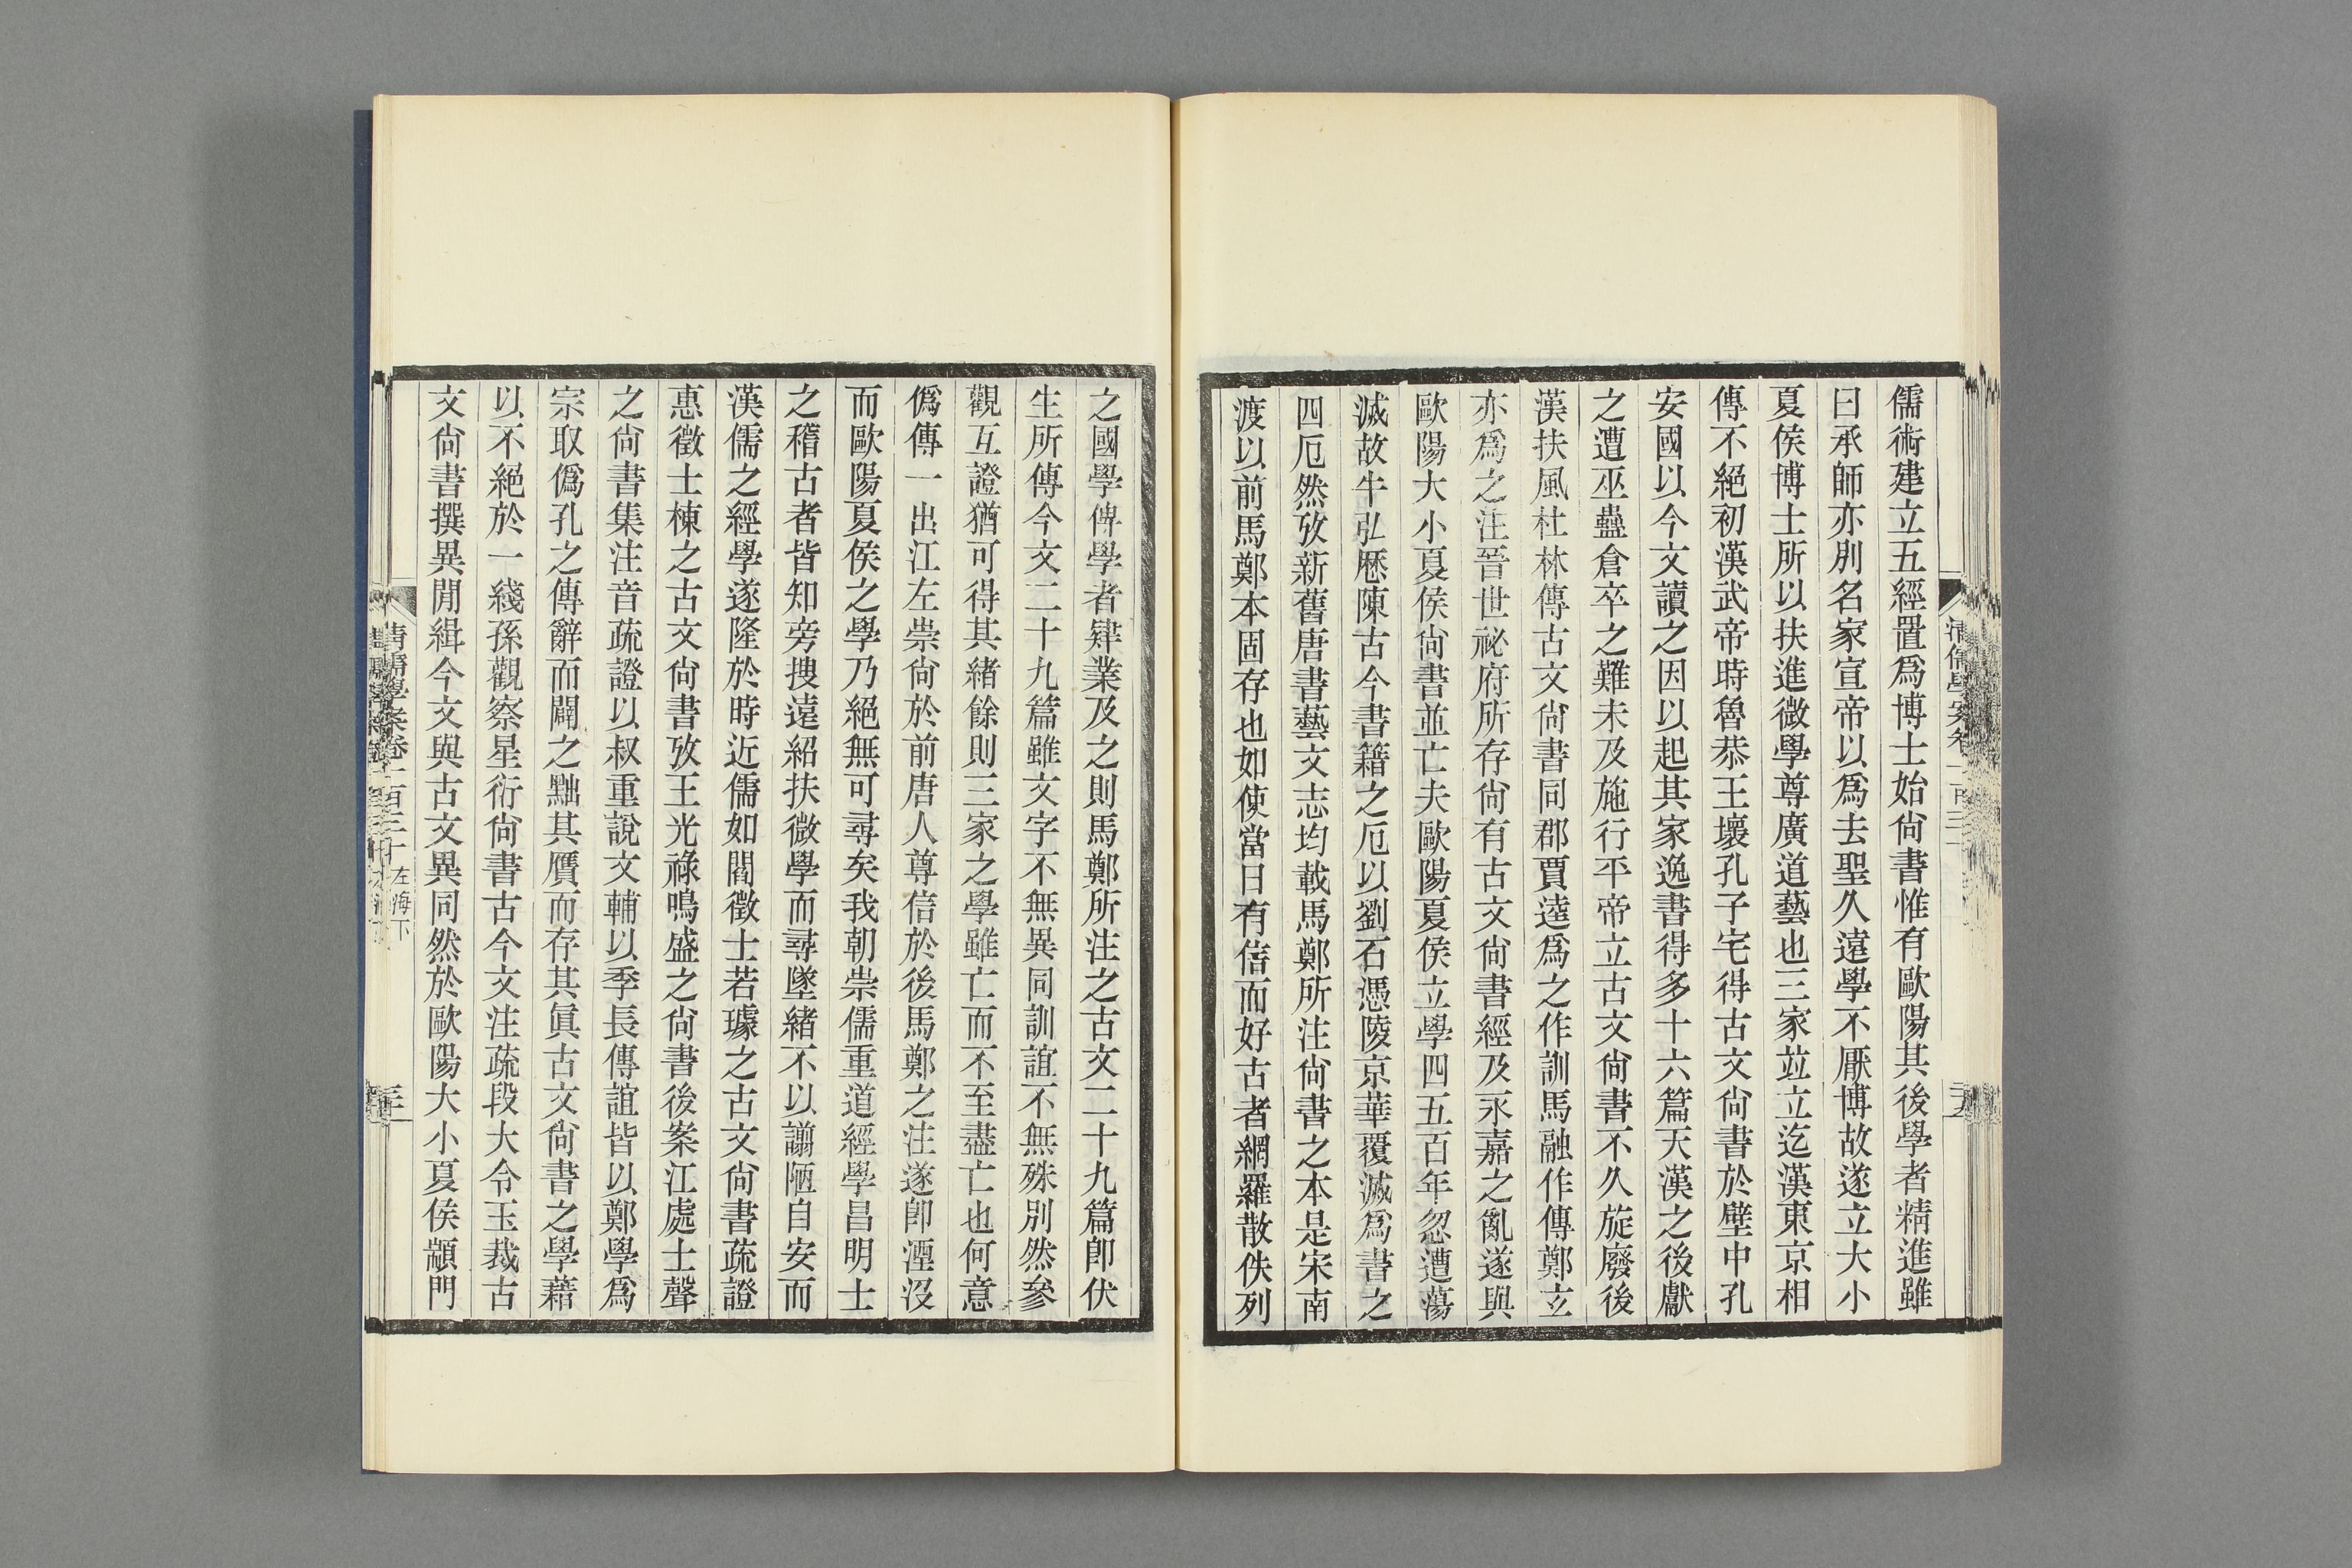 儒術建立五經置爲博士始尙書惟有歐陽其後學者精進雖
曰承師亦別名家宣帝以爲去聖久遠學不厭博故遂立大小
夏侯博士所以扶進微學尊廣道藝也三家竝立迄漢東京相
傳不絕初漢武帝時魯恭王壞孔子宅得古文尙書於壁中孔
安國以今文讀之因以起其家逸書得多十六篇天漢之後獻
之遭巫蠱倉卒之難未及施行平帝立古文尙書不久旋廢後
漢扶風杜林傳古文尙書同郡賈逵爲之作訓馬融作傳鄭玄
亦爲之注晉世祕府所存尙有古文尙書經及永嘉之亂遂與
歐陽大小夏侯尙書並亡夫歐陽夏侯立學四五百年忽遭蕩
滅故牛弘歷陳古今書籍之厄以劉石憑陵京華覆滅爲書之
四厄然攷新舊唐書藝文志均載馬鄭所注尙書之本是宋南
渡以前馬鄭本固存也如使當日有信而好古者網羅散佚列
之國學俾學者肄業及之則馬鄭所注之古文二十九篇卽伏
生所傳今文二十九篇雖文字不無異同訓誼不無殊別然參
觀互證猶可得其緒餘則三家之學雖亡而不至盡亡也何意
僞傳一出江左崇尙於前唐人尊信於後馬鄭之注遂卽湮沒
而歐陽夏侯之學乃絕無可尋矣我朝崇儒重道經學昌明士
之稽古者皆知旁搜遠紹扶微學而尋墜緒不以謭陋自安而
漢儒之經學遂隆於時近儒如閻徵士若璩之古文尙書疏證
惠徵士棟之古文尙書攷王光祿鳴盛之尙書後案江處士聲
之尙書集注音疏證以叔重說文輔以季長傳誼皆以鄭學爲
宗取僞孔之傳辭而闢之黜其贗而存其眞古文尙書之學藉
以不絕於一綫孫觀察星衍尙書古今文注疏段大令玉裁古
文尙書撰異閒緝今文與古文異同然於歐陽大小夏侯顓門
清儒學案卷一百三十 左海下